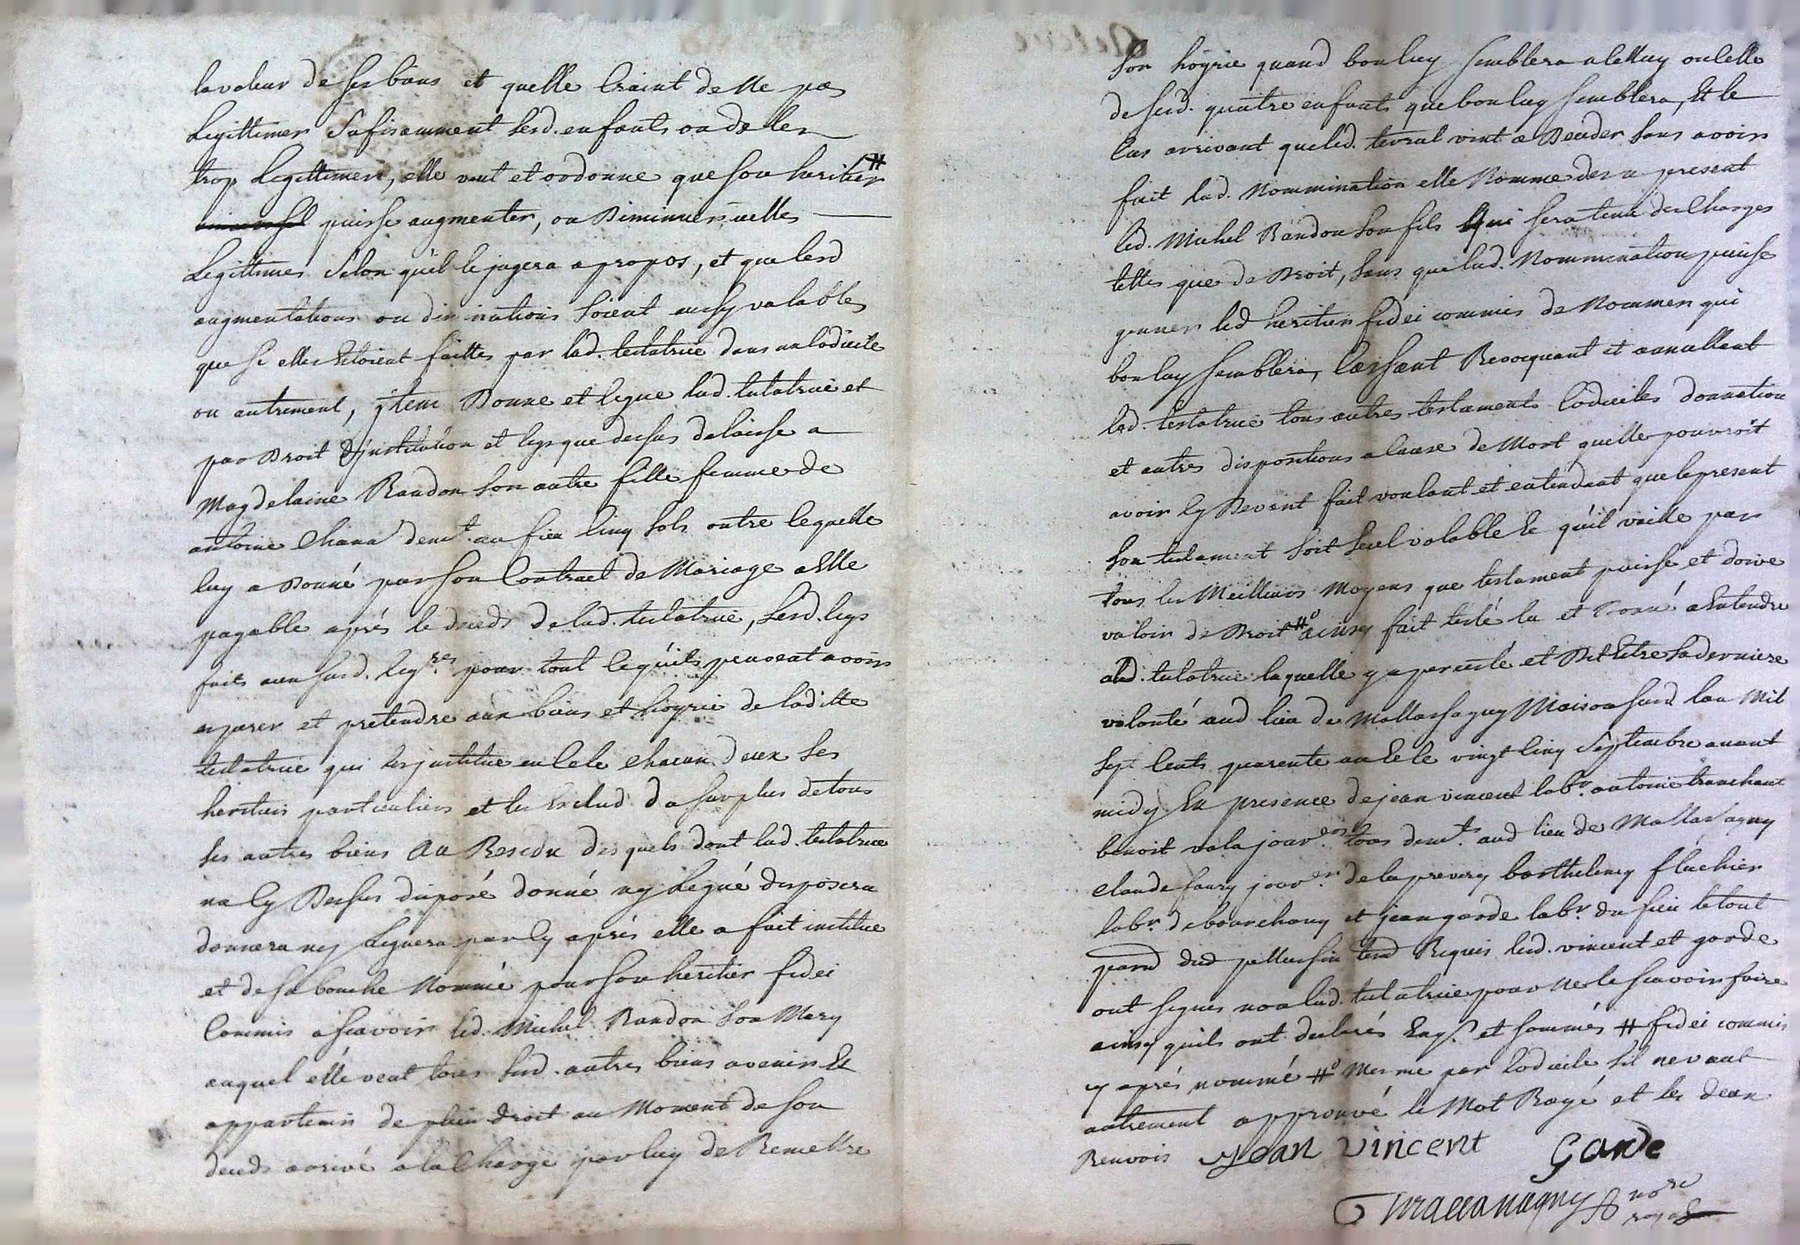 la valeur de ses biens et quelle craint de ne pas
legittimer sufisamment sesd. enfants ou de les
trop legittimer, elle veut et ordonne que son heritier #
puisse augmenter, ou diminuer icelles
legittimes selon qu'il le jugera apropos, et que lesd
augmentations ou diminutions soient aussy valables
que sy elles etoient faittes par lad. testatrice dans un codicile
ou autrement, jtem donne et legue lad. testatrice et
par droit d'institution et legs que dessus delaisse a
Magdelaine Randon son autre fille femme de
antoine Chana demt. au fieu cinq sols outre lequelle
luy a donné par son contract de Mariage a Elle
payable aprés le deceds de lad. testatrice, lesd. legs
faits aux susd. legres pour tout ce qu'ils peuvent avoir
esperer et pretendre aux biens et hoyrie de laditte
testatrice qui les jnstitue en cele chacun deux ses
heritiers particuliers et les Exclud du surplus de tous
ses autres biens au Residu desquels dont lad. testatrice
na cy dessus disposé donné ny legué disposera
donnera ny leguera par cy aprés elle a fait institué
et de sa bouche nommé pour son heritier fidei
Commis ascavoir led. Michel Randon son Mary
auquel elle veut tous sesd. autres biens avenir Et
appartenir de plein droit au Moment de son
deceds arrivé a la Charge par luy de Remettre
son hoyrie quand bon luy semblera a celluy ou celle
de sesd. quatre enfants que bon luy semblera, Et le
cas arrivant que led. vint a deceder sans avoir
fait lad. nommination elle Nomme des a present
led. Michel Randon son fils qui sera tenu des Charges
telles que de droit, sans que lad. Nommination puisse
gener led heritier fidei commis de nommer qui
bon luy semblera, Cassant Revocquant et annullant
lad. testatrice tous autres testaments Codiciles donnation
et autres dispositions a cause de Mort quelle pourroit
avoir cy devant fait voulant et entendant que le present
son testament soit seul valable Et qu'il vaille par
tous les Meilleurs Moyens que testament puisse et doive
valoir de droit # ainsy fait testé lu et a Entendre
a lad. testatrice laquelle y a percisté et dit Estre sa derniere
volonté aud lieu de Mallassagny Maison susd lan Mil
sept Cents quarente le vingt cinq Septembre avant
midy En presence de jean vincent labr. antoine tranchant
benoit vala jourers tous demts. aud lieu de Mallassagny
claude faury jourer. de barthelemy fluchier
labr. de bourchany et jean garde labr du fieu le tout
parr dud pellussin temd Requis led. vincent et garde
ont signés non lad. testatrice pour ne le scavoir faire
ainsy quils ont declarés Enqs. et sommés # fidei commis
cy aprés nommé # Mesme par Codicile sil ne vaut
autrement approuvé le Mot Rayé et les deux
Renvois Jean vincent Garde
nore
royal